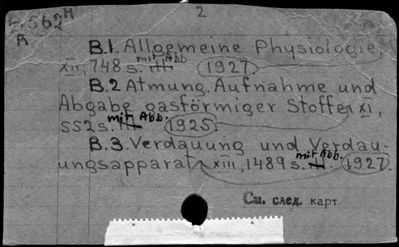 2
Б.562 A
A
B.1. Allgemeine Physiologie,
XII, 748 s. mit Abb. 1927
B.2 Atmung, Aufnahme und
Abgabe gasförmiger Stoffe, XI,
552 s. mit Abb. 1925.
B.3. Verdauung und Verdau-
ungsapparat, XIII, 1489 s. mit Abb. 1927.
См. след. карт.